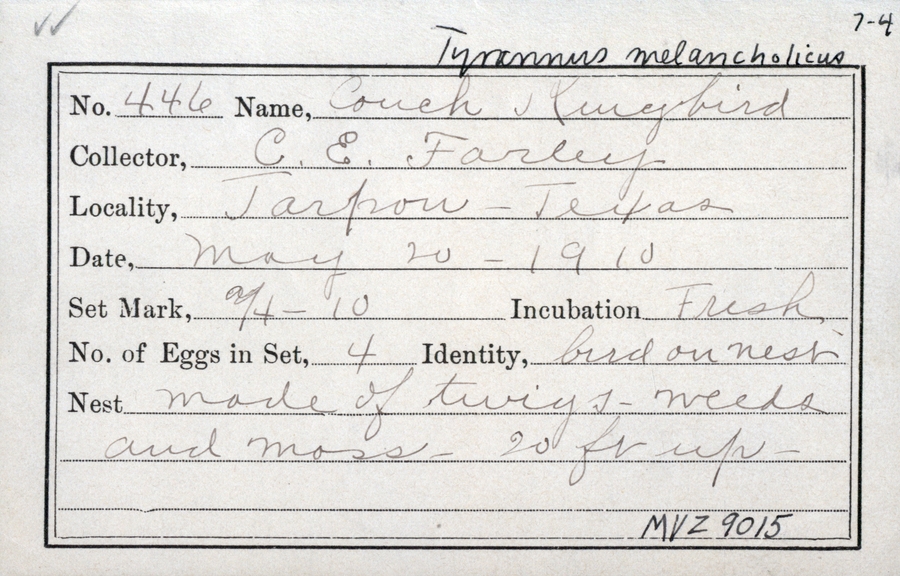 7-4
Tyrannus melancholicus
No. 446 Name, Couch Kingbird
Collector, C. E. Farley
Locality, Tarpon - Texas
Date, May 20 - 1910
Set Mark, a/4 - 10 Incubation Fresh
No. of Eggs in Set, 4 Identity, bird on nest
Nest made of twigs - weeds
and moss - 20 ft up -
MVZ 9015